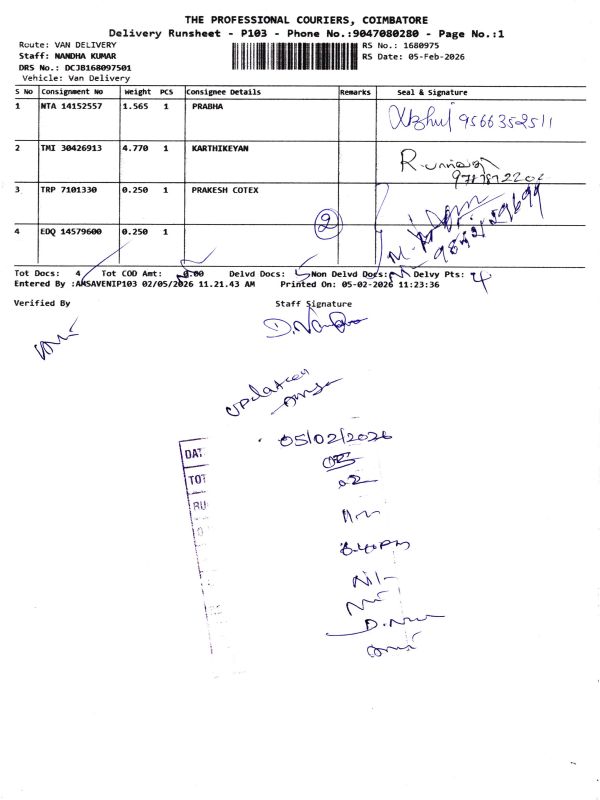 THE PROFESSIONAL COURIERS, COIMBATORE
Delivery Runsheet - P103 - Phone No.:9047080280 - Page No.:1
Route: VAN DELIVERY RS No.: 1680975
Staff: NANDHA KUMAR RS Date: 05-Feb-2026
DRS No.: DCJB168097501
Vehicle: Van Delivery
S No Consignment No Weight PCS Consignee Details Remarks Seal & Signature
1 MTA 14152557 1.565 1 PRABHA 9566352511
2 TMI 30426913 4.770 1 KARTHIKEYAN
3 TRP 7101330 0.250 1 PRAKESH COTEX
2
4 EDQ 14579600 0.250 1
Tot Docs: 4 Tot COD Amt: 0.00 Delvd Docs: Non Delvd Docs: Delvy Pts: 4
Entered By :AMSAVENIP103 02/05/2026 11.21.43 AM Printed On: 05-02-2026 11:23:36
Verified By Staff Signature
updated
05/02/2026
DAT
TOT
02
RU
8.40PM
Nil